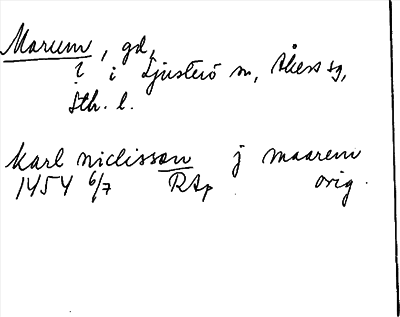 Marum, gd,
i Ljusterö sn, Åkers sg,
Sth. l.
Karl niclisson j maarem
1454 6/7 RAp orig.